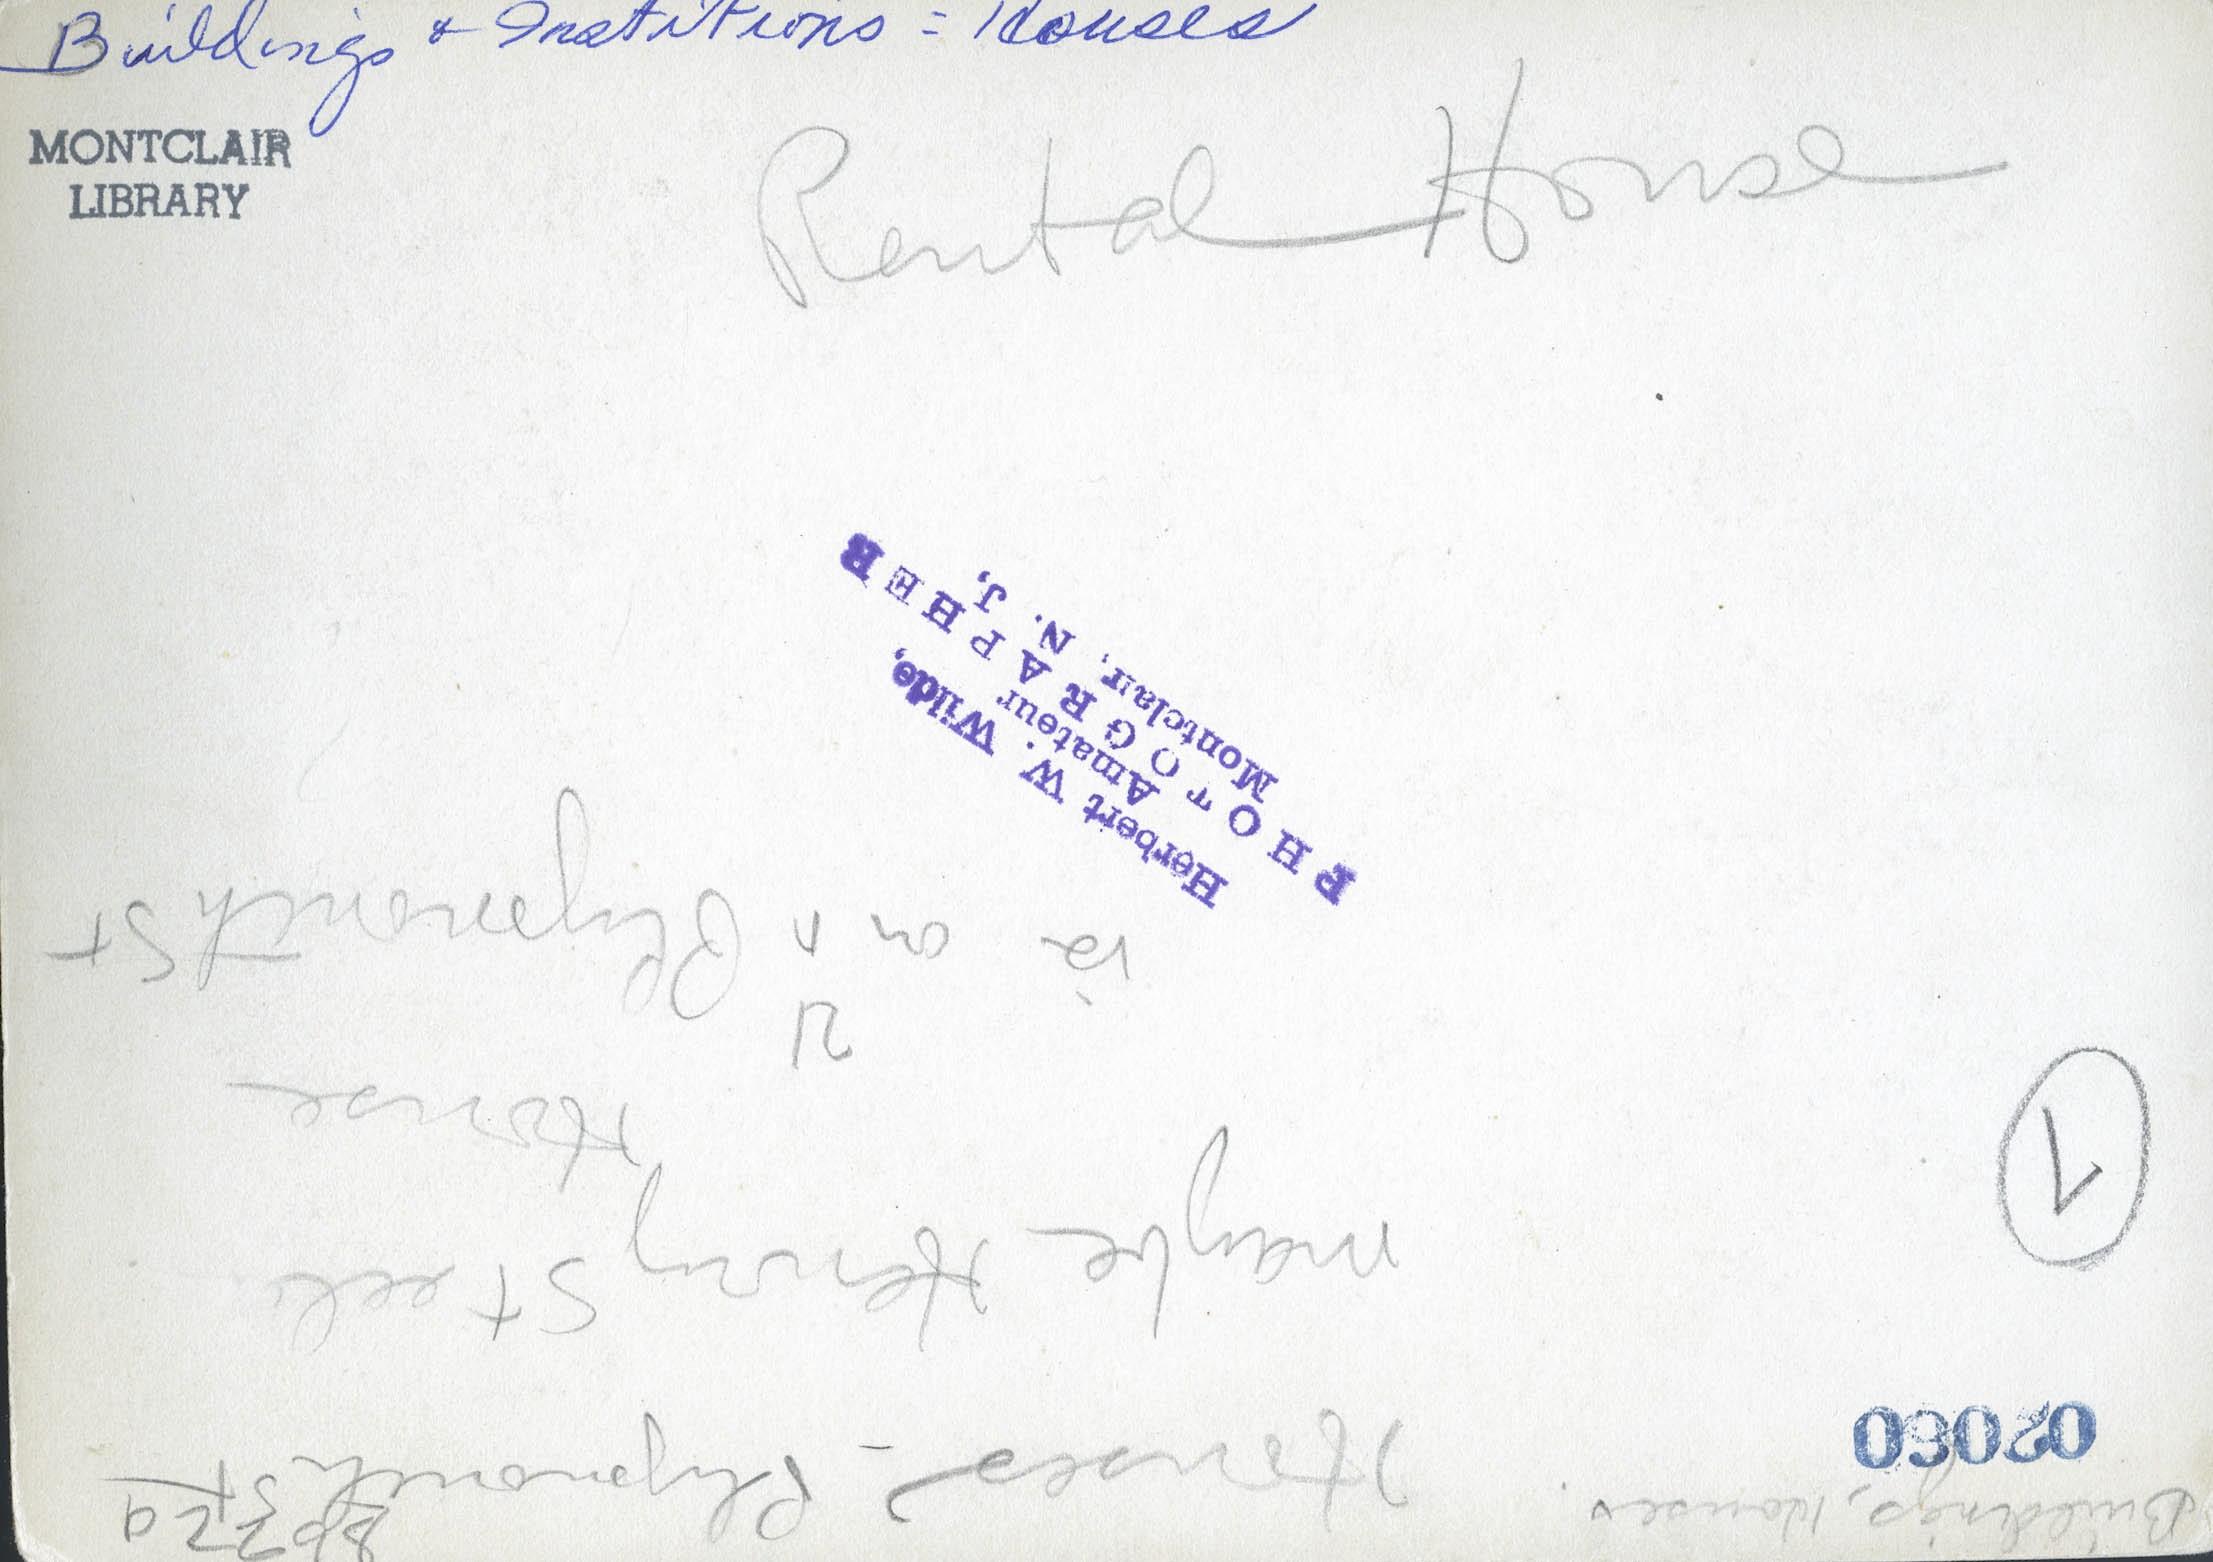 Buildings & Institutions = Houses
MONTCLAIR
LIBRARY
Rental House
Herbert W. Wilde,
Amateur
PHOTOGRAPHER
Montclair, N. J,
Buildings, Houses.
House - Plymouth St
02060
maybe Henry Street
House
21
is on Plymouth St
1